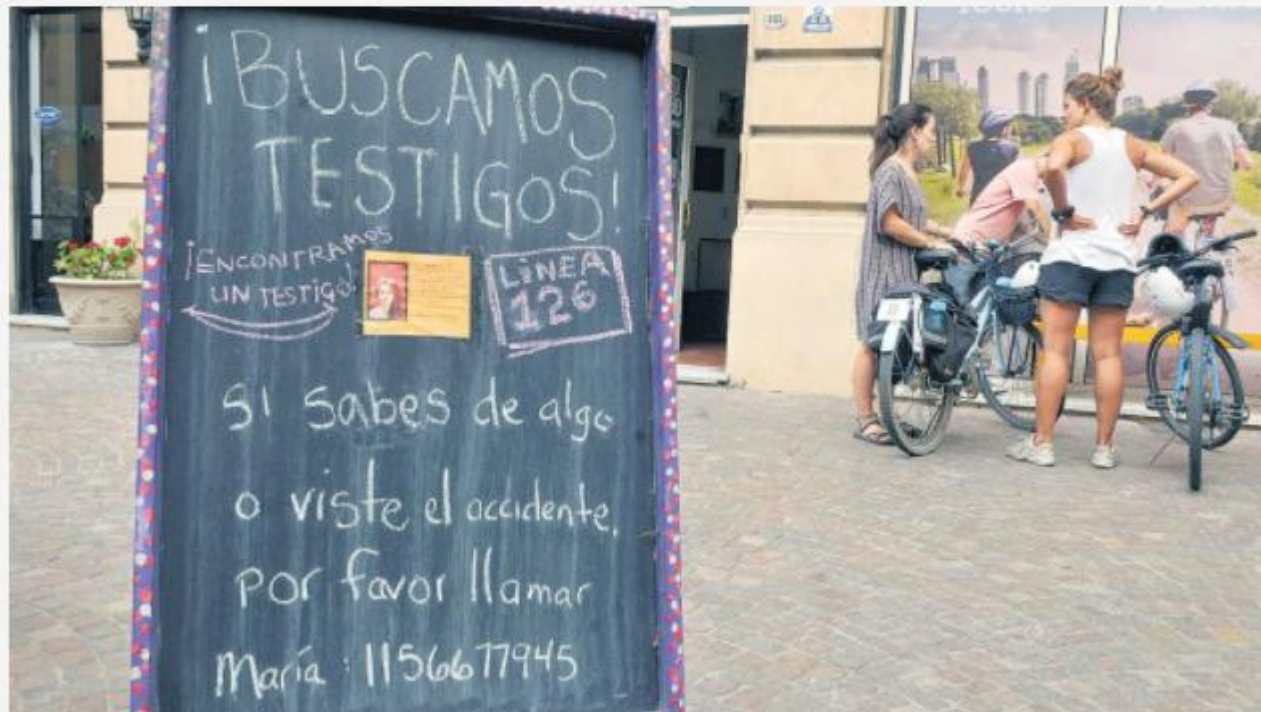 ¡BUSCAMOS
TESTIGOS!
¡ENCONTRAMOS
UN TESTIGO!
LINEA
126
si sabes de algo
o viste el accidente,
por favor llamar
María: 1156677945